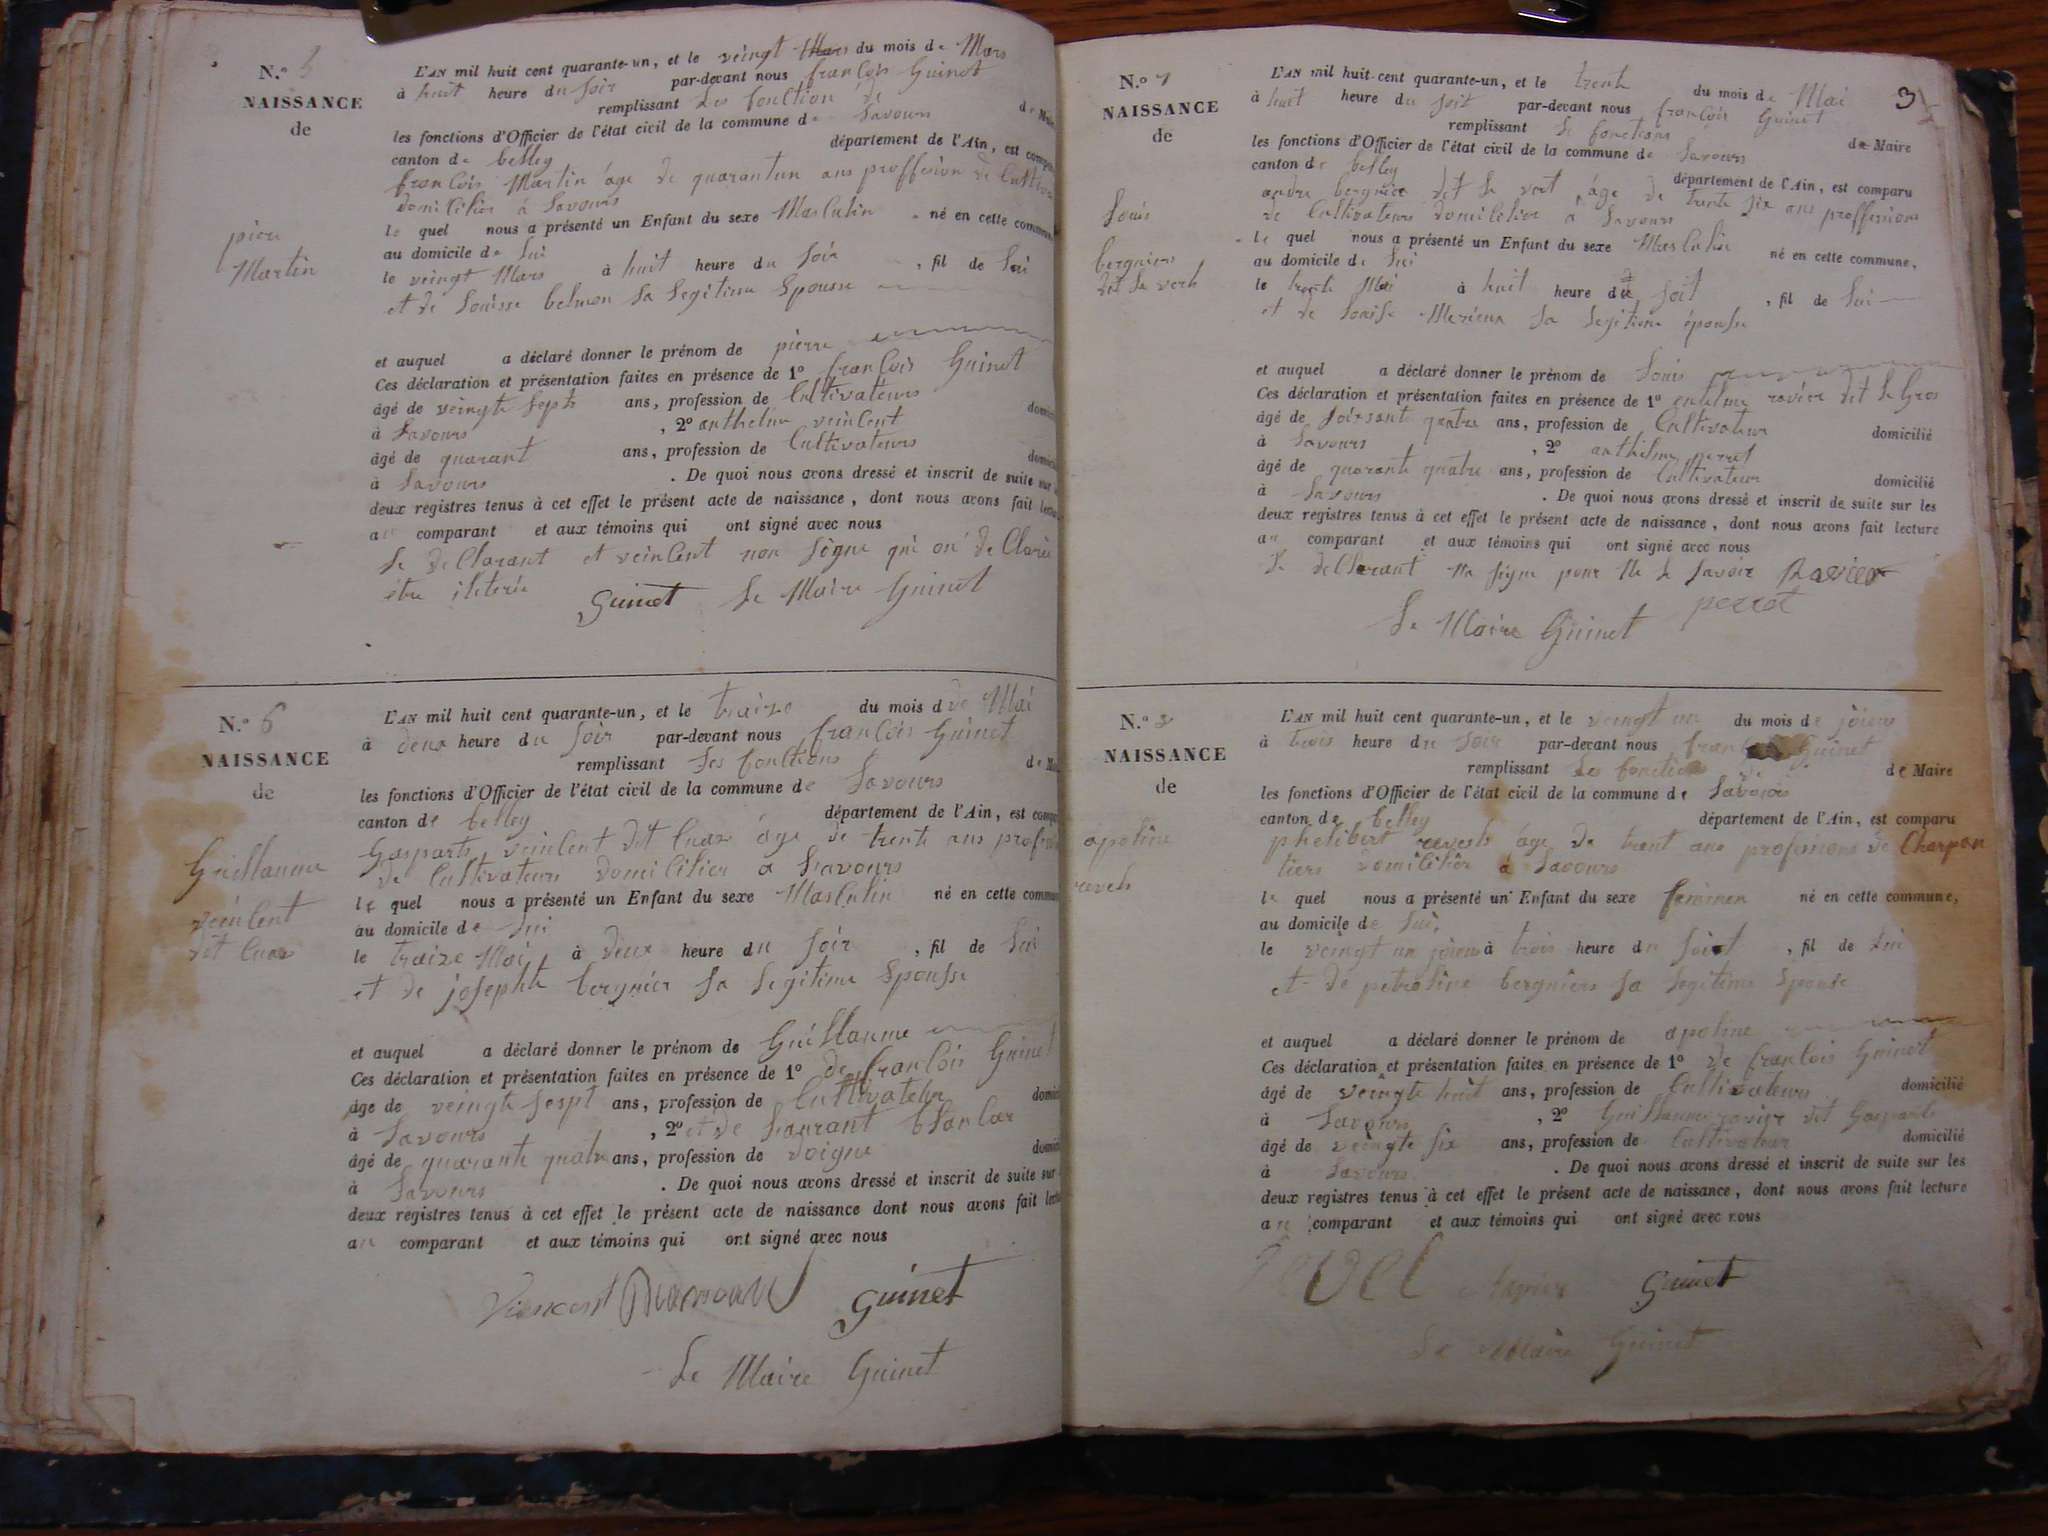 N.o 5
NAISSANCE
de
pierre
Martin
L'AN mil huit cent quarante-un, et le veingt Mars du mois de Mars
à huit heure du soir par-devant nous françois Guinet
remplissant les fonction de de Maire
les fonctions d'Officier de l'état civil de la commune de Savours
canton de belley département de l'Ain, est comparu
françois Martin âge de quarantun ans proffesion de Cultiva
domicilier à Savours
le quel nous a présenté un Enfant du sexe Masculin né en cette commune
au domicile de lui
le veingt Mars à huit heure du soir, fil de lui
et de Louisse belmon sa legitime Epousse
et auquel a déclaré donner le prénom de pierre
Ces déclaration et présentation faites en présence de 1o françois Guinet
âgé de veingte septe ans, profession de Cultivateurs domicilié
à Savours, 2o anthelme veincent
âgé de quarant ans, profession de Cultivateurs domicilié
à Savours. De quoi nous avons dressé et inscrit de suite sur
deux registres tenus à cet effet le présent acte de naissance, dont nous avons fait lecture
au comparant et aux témoins qui ont signé avec nous
le declarant et veincent non signe qui on declarée
être iliterée Guinet Le Maire Guinet
N.o 6
NAISSANCE
de
Guillaume
veincent
dit luaz
L'AN mil huit cent quarante-un, et le traize du mois de Mai
à deux heure du soir par-devant nous françois Guinet
remplissant les fonctions de Maire
les fonctions d'Officier de l'état civil de la commune de Savours
canton de belley département de l'Ain, est comparu
Gasparts veincent dit luaz âge de trente ans profession
de Cultivateurs domicilier a Savours
le quel nous a présenté un Enfant du sexe Masculin né en cette commune
au domicile de lui
le traize Mai à deux heure du soir, fil de lui
et de josephte bergnier sa legitime Epousse
et auquel a déclaré donner le prénom de Guillaume
Ces déclaration et présentation faites en présence de 1o de françois Guinet
âgé de veingte sespt ans, profession de Cultivateur domicilié
à Savours, 2o et de Laurant
âgé de quarante quatre ans, profession de domicilié
à Savours. De quoi nous avons dressé et inscrit de suite sur
deux registres tenus à cet effet le présent acte de naissance dont nous avons fait lecture
au comparant et aux témoins qui ont signé avec nous
Guinet
Le Maire Guinet
3
N.o 7
NAISSANCE
de
Louis
bergniers
dit le verk
L'AN mil huit cent quarante-un, et le trente du mois de Mai
à huit heure du soit par-devant nous françois Guinet
remplissant le fonctions de Maire
les fonctions d'Officier de l'état civil de la commune de Savours
canton de belley département de l'Ain, est comparu
andre bergnier dit le vert âge de trente six ans proffesions
de Cultivateurs domicilier a Savours
le quel nous a présenté un Enfant du sexe Masculin né en cette commune,
au domicile de lui
le trente Mai à huit heure du soit, fil de lui
et de Louise Merieux sa legitime épousse
et auquel a déclaré donner le prénom de Louis
Ces déclaration et présentation faites en présence de 1o entelme ravier dit le Gros
âgé de soixsante quatre ans, profession de Cultivateur domicilié
à Savours, 2o anthelme perret
âgé de quarante quatre ans, profession de Cultivateur domicilié
à Savours. De quoi nous avons dressé et inscrit de suite sur les
deux registres tenus à cet effet le présent acte de naissance, dont nous avons fait lecture
au comparant et aux témoins qui ont signé avec nous
Le declarant na signe pour ne le savoir Ravier
perret
Le Maire Guinet
N.o 8
NAISSANCE
de
apoline
revels
L'AN mil huit cent quarante-un, et le veingt un du mois de joieu
à trois heure du soir par-devant nous Guinet
remplissant les fonctions de Maire
les fonctions d'Officier de l'état civil de la commune de Savours
canton de belley département de l'Ain, est comparu
phelibert revels âge de trent ans profesions de Charpan
tiers domicilier à Savours
le quel nous a présenté un Enfant du sexe né en cette commune,
au domicile de lui
le veingt un joieu à trois heure du soit, fil de lui
et de petroline bergniers sa legitime Epouse
et auquel a déclaré donner le prénom de apoline
Ces déclaration et présentation faites en présence de 1o de françois Guinet
âgé de veingte huit ans, profession de Cultivateurs domicilié
à Savours, 2o Guillaume ravier dit Gasparts
âgé de veingte six ans, profession de Cultivateur domicilié
à Savours. De quoi nous avons dressé et inscrit de suite sur les
deux registres tenus à cet effet le présent acte de naissance, dont nous avons fait lecture
au comparant et aux témoins qui ont signé avec nous
Revel Ravier Guinet
Le Maire Guinet